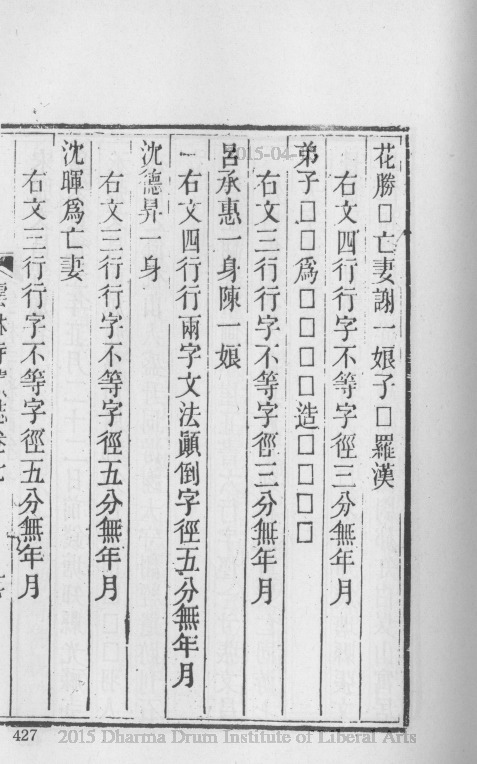 花勝□亡妻謝一娘子□羅漢
右文四行行字不等字徑三分無年月
弟子□□爲□□□□造□□□□
右文三行行字不等字徑三分無年月
呂承惠一身陳一娘
右文四行行兩字文法顚倒字徑五分無年月
沈德昇一身
右文三行行字不等字徑五分無年月
沈暉爲亡妻
右文三行行字不等字徑五分無年月
427
2015 Dharma Drum Institute of Liberal Arts